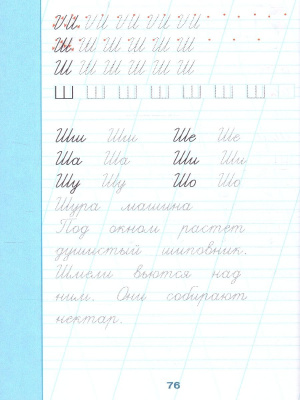 Ш Ш Ш Ш Ш Ш
Ш Ш Ш Ш Ш Ш
Ш Ш Ш Ш Ш Ш Ш
Шш Шш Ше Ше
Ша Ша Ши Ши
Шу Шу Шо Шо
Шура машина
Под окном растет
душистый шиповник.
Шмели вьются над
ним. Они собирают
нектар.
76